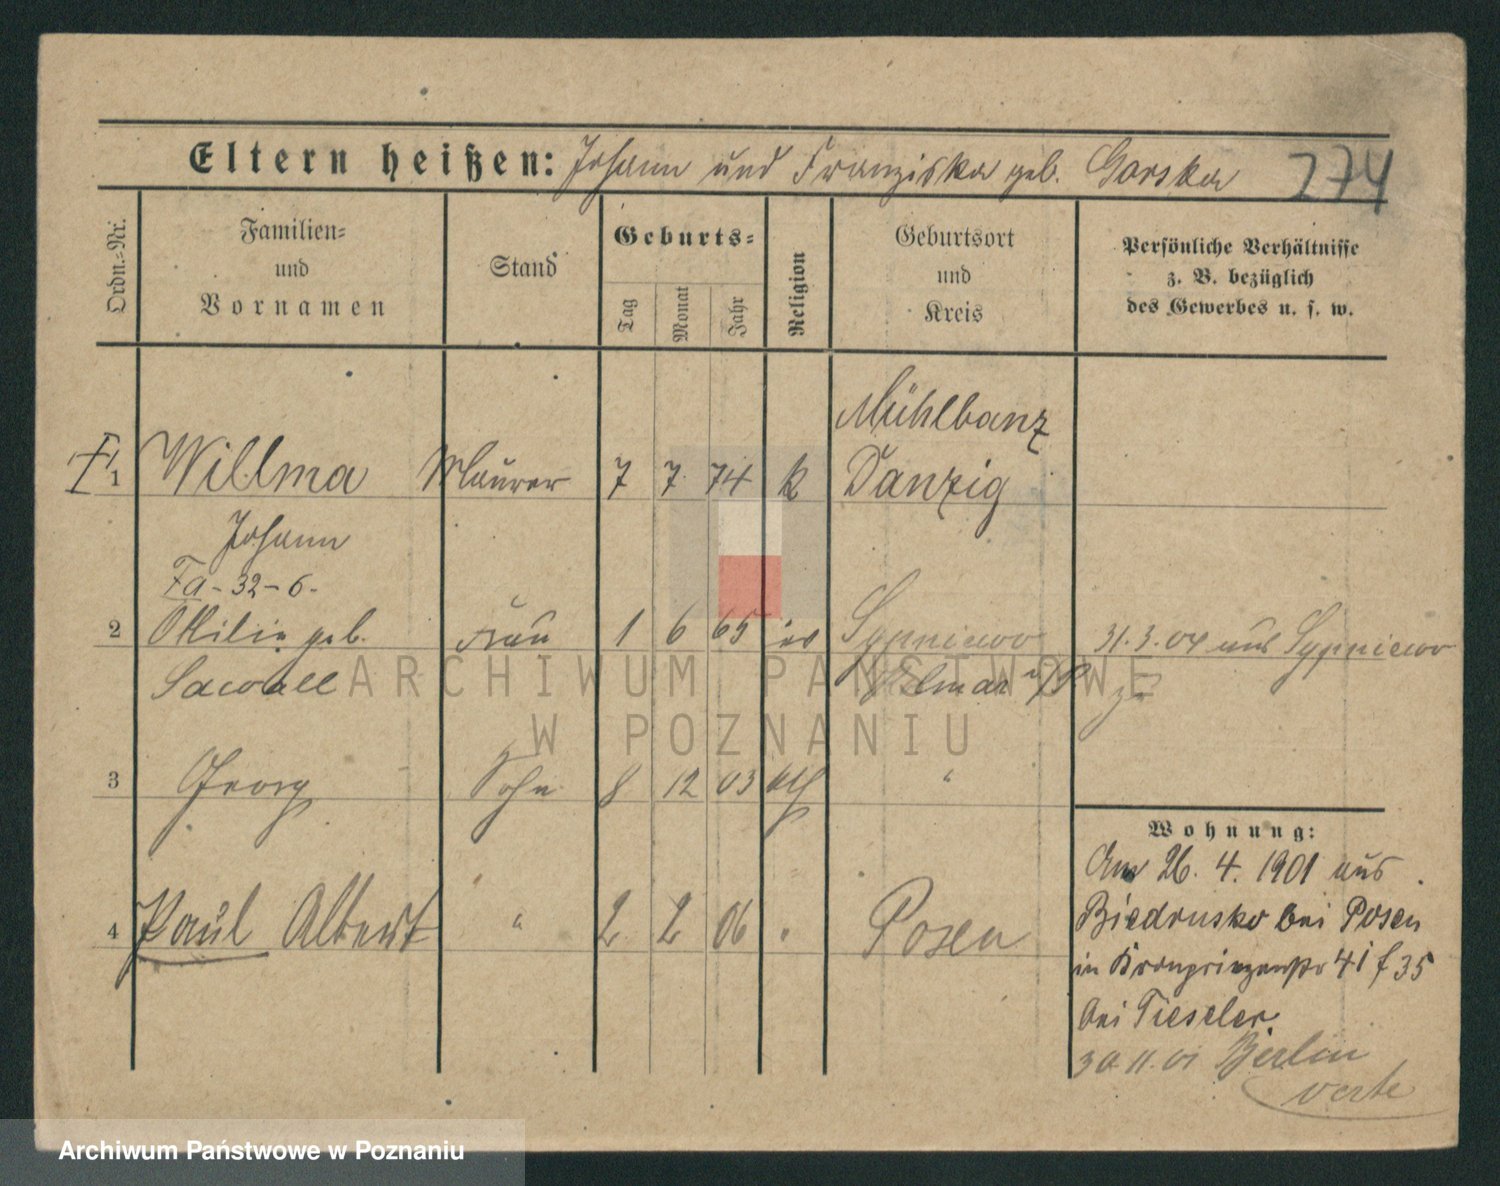 Eltern heißen: Johann und Franziska geb. Gorska 274
Ordn.=Nr.
Familien=
und
Vornamen
Stand
Geburts=
Tag
Monat
Jahr
Religion
Geburtsort
und
Kreis
Persönliche Verhältnisse
z. B. bezüglich
des Gewerbes u. s. w.
Mühlbanz
1 Willma Maurer 7 7 74 k Danzig
Johann
Fa - 32 - 6 -
2 Ottilie geb. Frau 1 6 65 ev Sypniewo 31.3.04 aus Sypniewo
Sawall Kolmar i/P
3 Georg Sohn 8 12 03 kth "
4 Paul Albert " 2 2 06 " Posen
Wohnung:
Am 26. 4. 1901 aus
Biedrusko bei Posen
in Kronprinzenstr 41 f 35
bei Tieseler.
30.11.01 Berlin
verte
ARCHIWUM PAŃSTWOWE
W POZNANIU
Archiwum Państwowe w Poznaniu